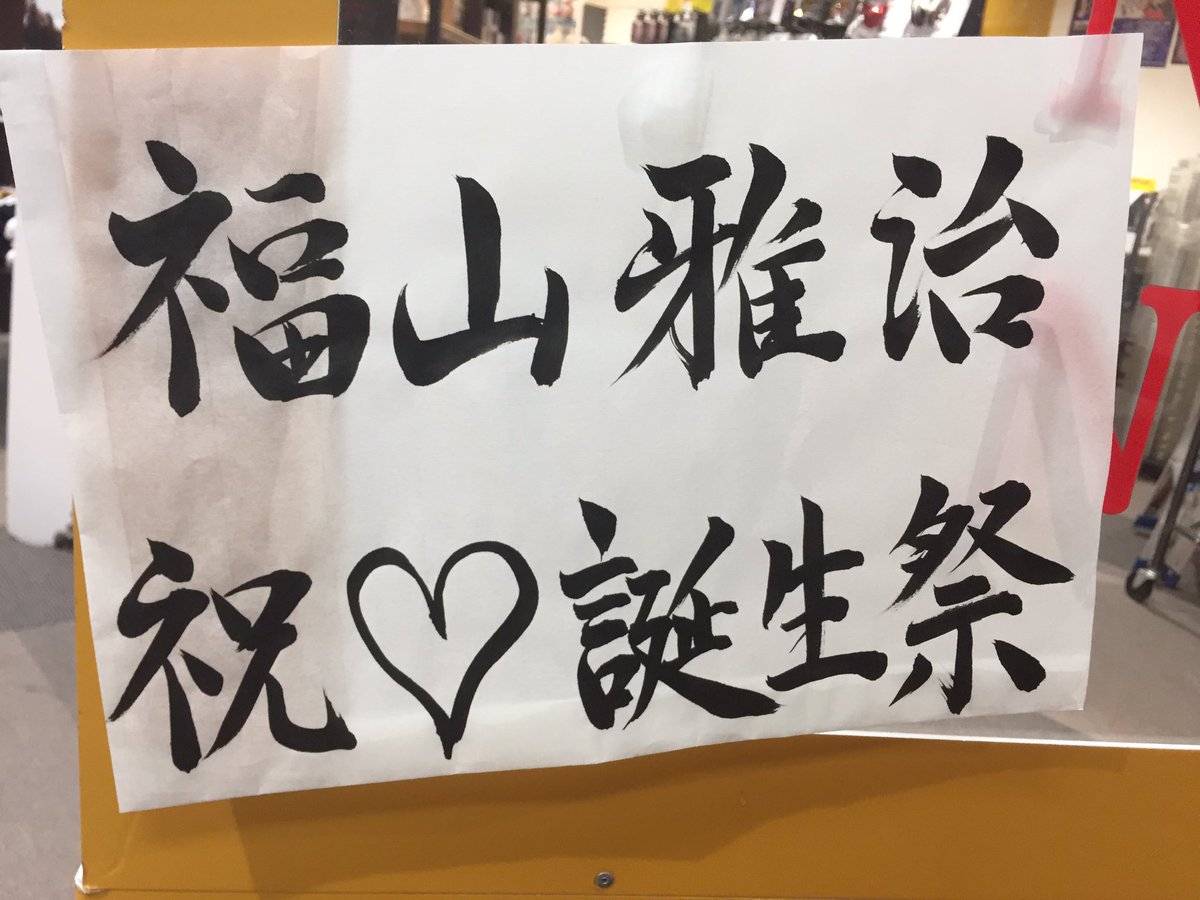 福山雅治
祝♡誕生祭